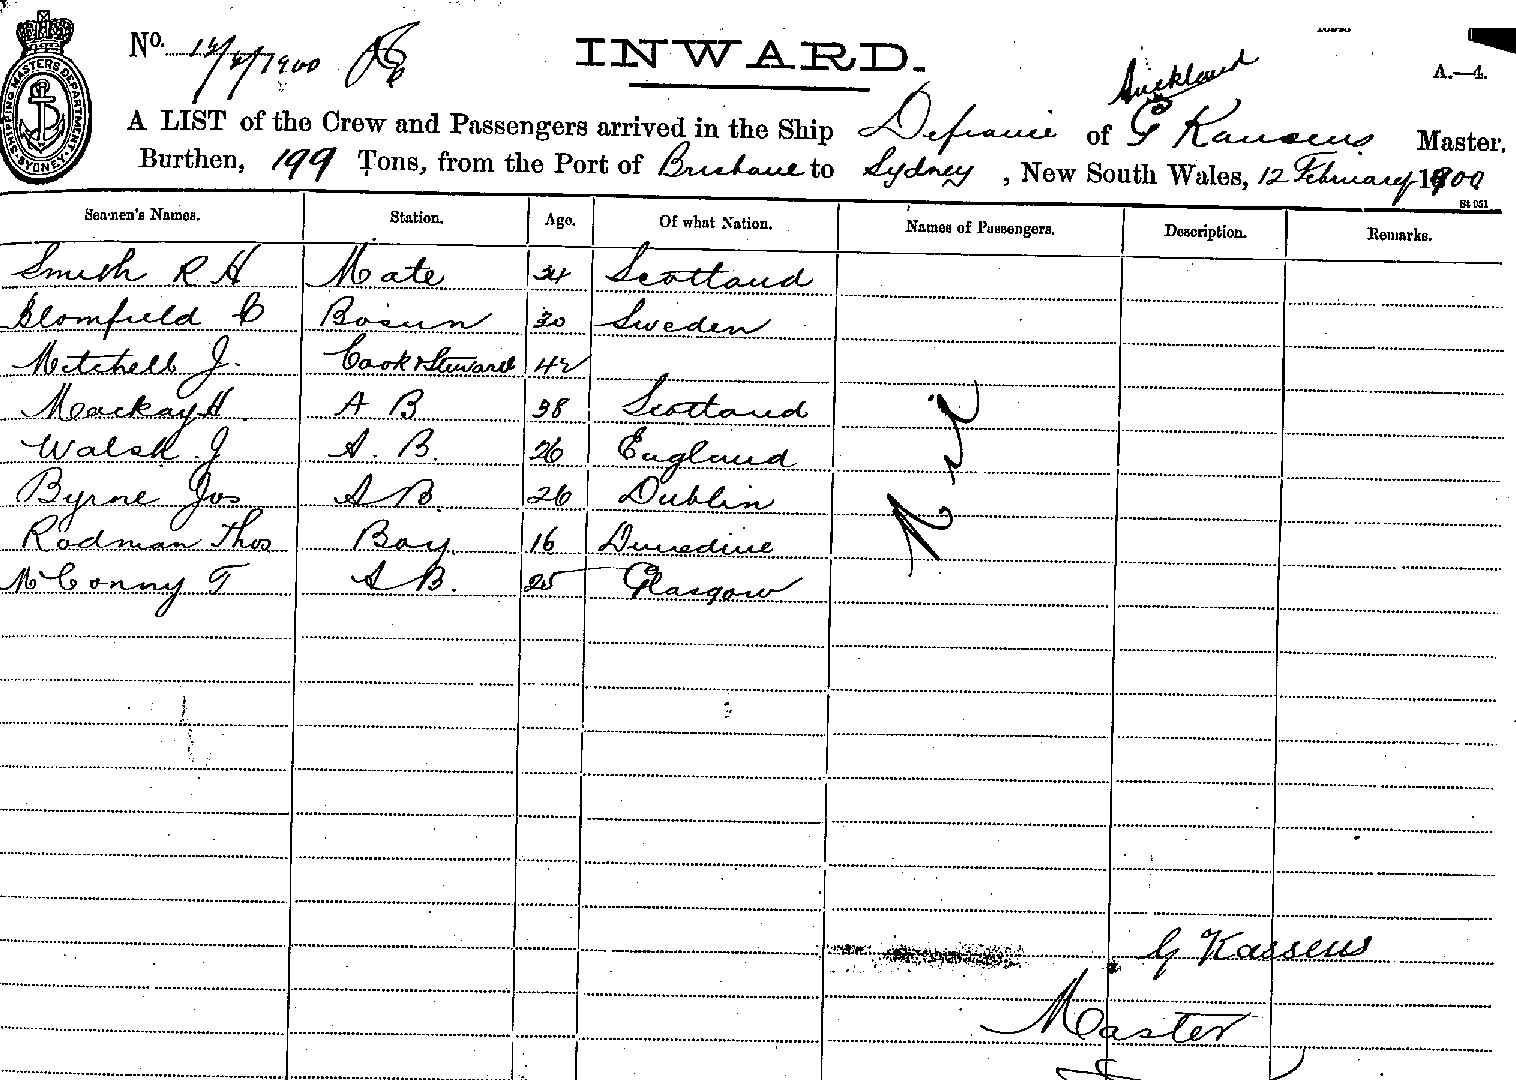 No. 12/2/1900
INWARD.
A.—4.
SHIPPING MASTERS DEPARTMENT SYDNEY
Auckland
A LIST of the Crew and Passengers arrived in the Ship Defiance of G Kassens Master,
Burthen, 199 Tons, from the Port of Brisbane to Sydney, New South Wales, 12 February 1900
St 051
Seamen's Names. Station. Age. Of what Nation. Names of Passengers. Description. Remarks.
Smith R H Mate 34 Scotland
Blomfield C Bosun 30 Sweden
Mitchell J. Cook & Steward 42
Mackay H. A B 38 Scotland
Walsh. J A. B. 26 England
Byrne Jos A B. 26 Dublin
Rodman Thos Boy. 16 Dunedine
McConny T A B. 25 Glasgow
Nil
G Kassens
Master